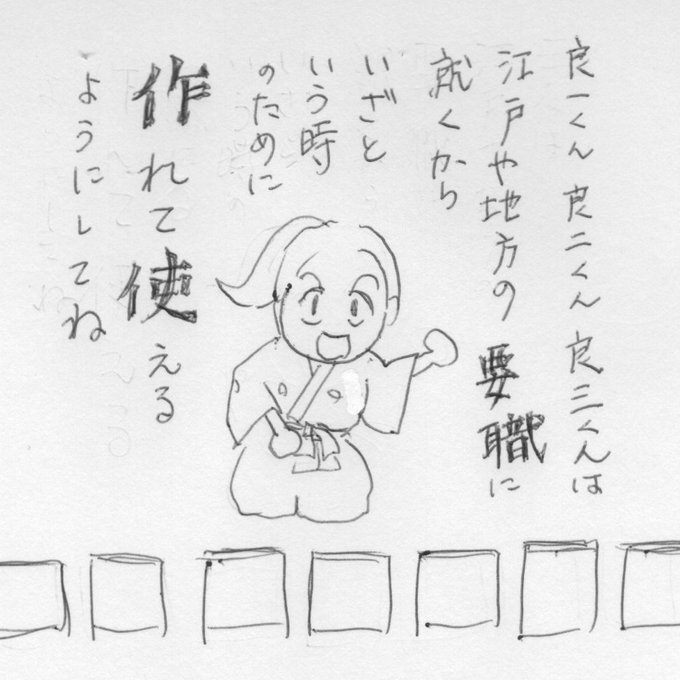 良一くん良二くん良三くんは
江戸や地方の要職に
就くから
いざと
いう時
のために
作れて使える
ようにしてね